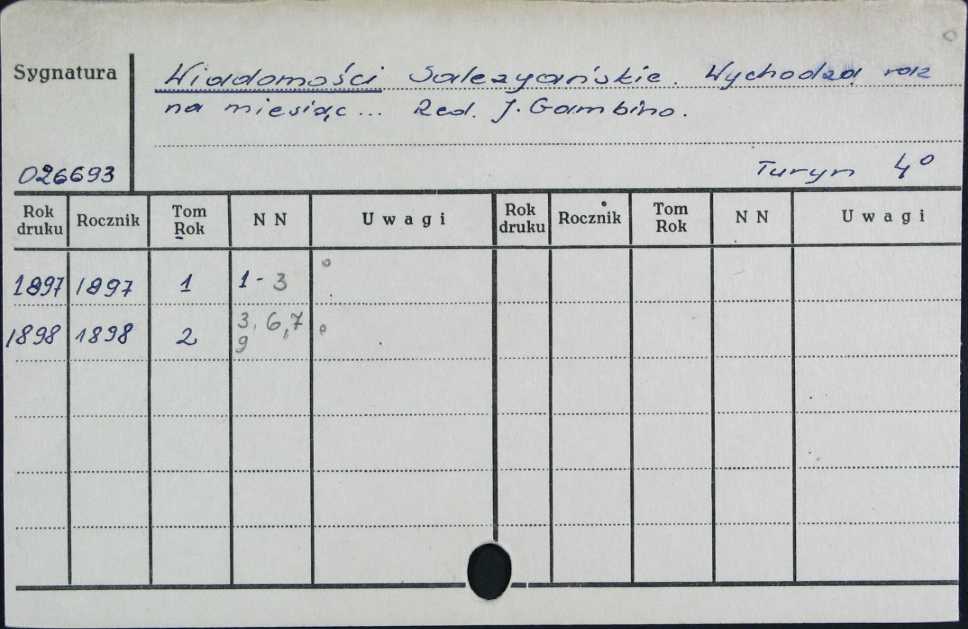 Sygnatura
Wiadomości Salezyańskie. Wychodzą raz
na miesiąc... Red. J. Gambino.
026693
Turyn 4°
Rok druku Rocznik Tom Rok N N Uwagi Rok druku Rocznik Tom Rok N N Uwagi
1897 1897 1 1-3
1898 1898 2 3, 6, 7
9